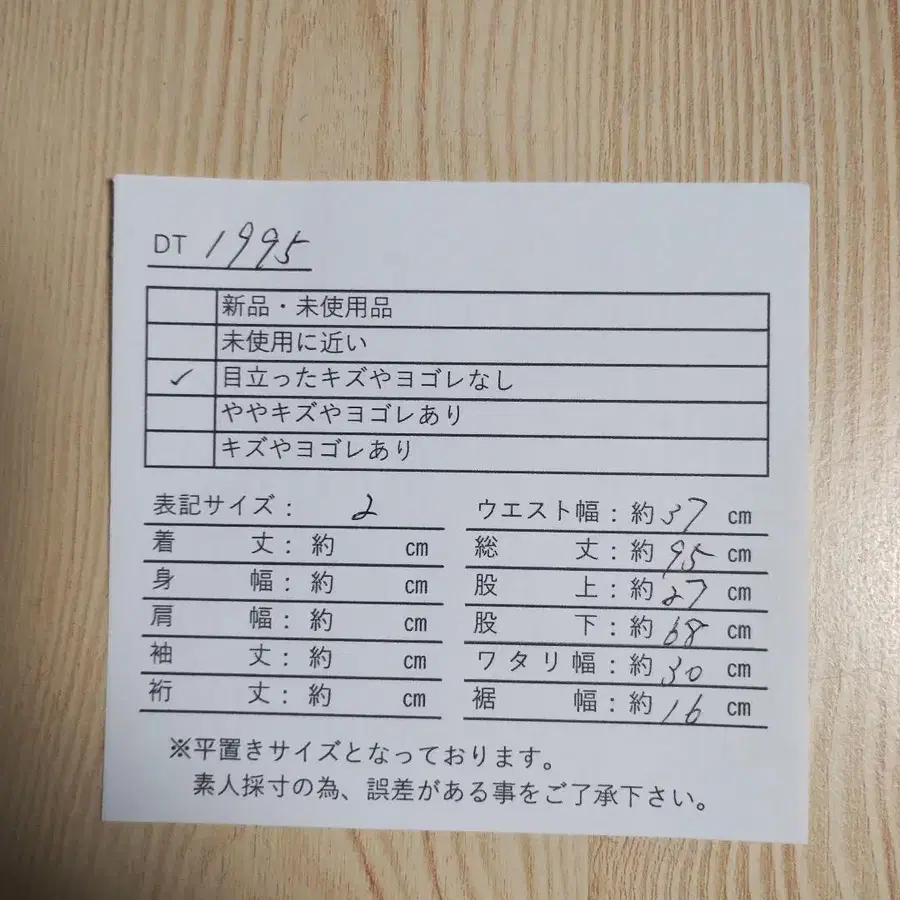 DT 1995
新品・未使用品
未使用に近い
✓ 目立ったキズやヨゴレなし
ややキズやヨゴレあり
キズやヨゴレあり
表記サイズ： 2
着 丈：約 ㎝
身 幅：約 ㎝
肩 幅：約 ㎝
袖 丈：約 ㎝
裄 丈：約 ㎝
ウエスト幅：約 37 ㎝
総 丈：約 95 ㎝
股 上：約 27 ㎝
股 下：約 68 ㎝
ワタリ幅：約 30 ㎝
裾 幅：約 16 ㎝
※平置きサイズとなっております。
素人採寸の為、誤差がある事をご了承下さい。